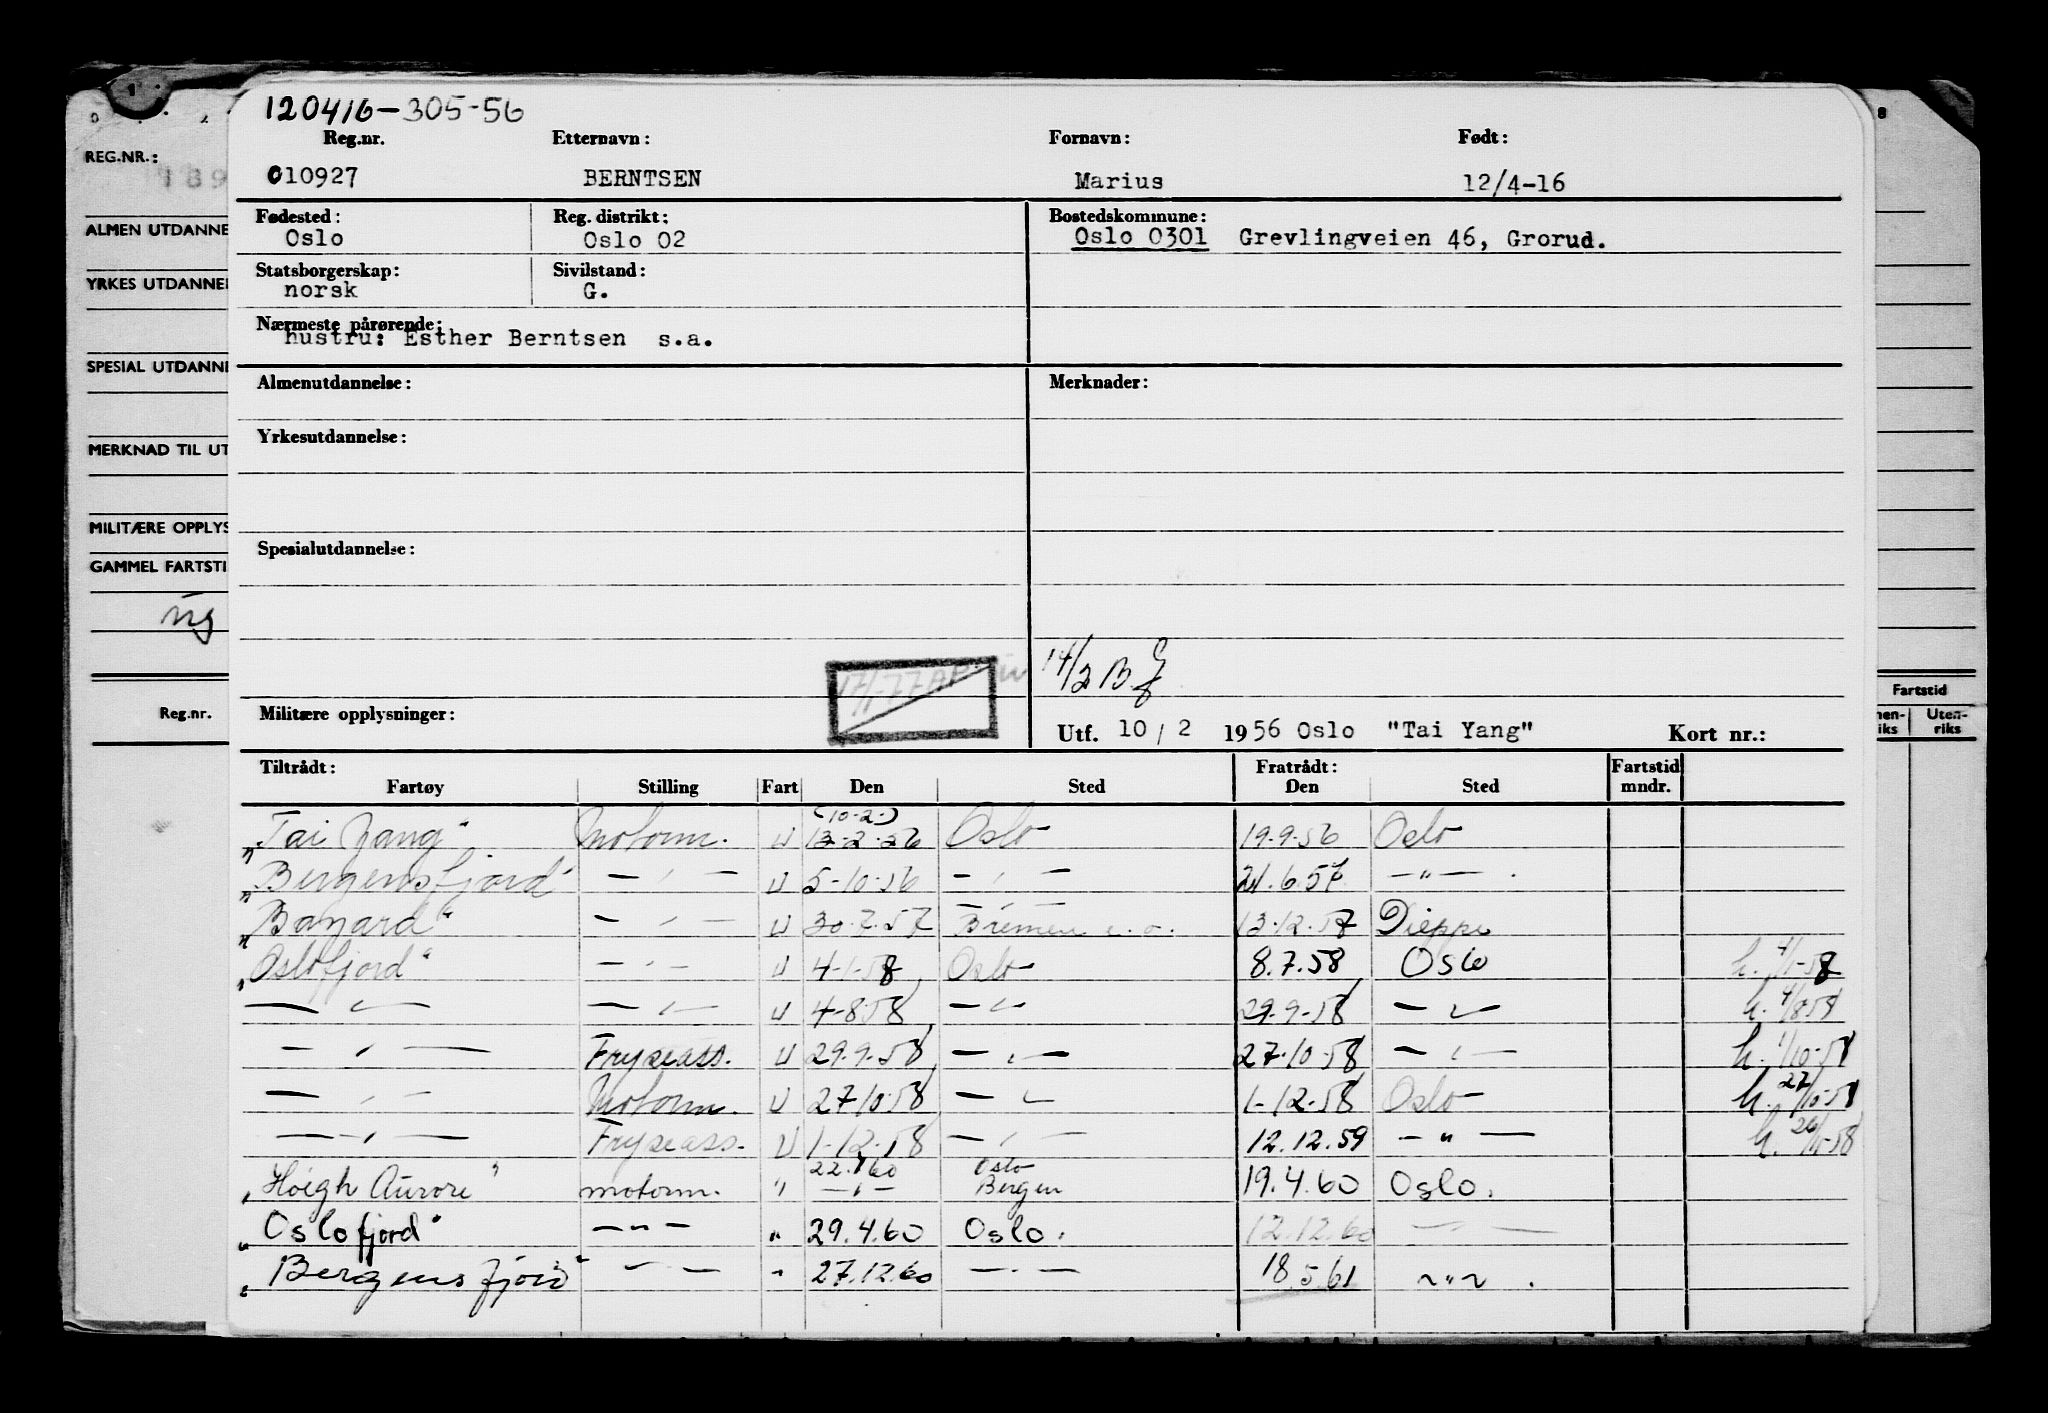 120416-305-56
Reg.nr. Etternavn: Fornavn: Født:
010927 BERNTSEN Marius 12/4-16
Fødested: Reg. distrikt: Bostedskommune:
Oslo Oslo 02 Oslo 0301 Grevlingveien 46, Grorud.
Statsborgerskap: Sivilstand:
norsk G.
Nærmeste pårørende:
hustru: Esther Berntsen s.a.
Almenutdannelse: Merknader:
Yrkesutdannelse:
Spesialutdannelse:
14/2 B
Militære opplysninger: Utf. 10/2 1956 Oslo "Tai Yang" Kort nr.:
Tiltrådt: Fratrådt: Fartstid
Fartøy Stilling Fart Den Sted Den Sted mndr.
(10-2-)
"Tai Yang" Motorm. U 13-2-56 Oslo 19-9-56 Oslo
"Bergensfjord" — " — U 5-10-56 — " — 21.6.57 — " — .
"Banard" — " — U 30.7.57 Bremen e.o. 13.12.57 Dieppe
"Oslofjord" — " — U 4-1-58 Oslo 8.7.58 Oslo h. 4/1-58
— " — — " — U 4-8-58 — " — 29-9-58 — " — h. 4/8 58
— " — Fryseass. U 29.9.58 — " — 27-10-58 — " — h. 1/10-58
— " — Motorm. U 27-10-58 — " — 1-12-58 Oslo h. 27/10-58
— " — Fryseass. U 1-12-58 — " — 12.12.59 — " — h.
22.1.60 Oslo
"Höegh Aurore" motorm. " — " — Bergen 19.4.60 Oslo.
"Oslofjord" — " — " 29.4.60 Oslo. 12.12.60 — " —
"Bergensfjord" — " — " 27.12.60 — " — 18.5.61 — " — .
REG.NR.:
189
ALMEN UTDANNE
YRKES UTDANNE
SPESIAL UTDANN
MERKNAD TIL UT
MILITÆRE OPPLYS
GAMMEL FARTSTI
Reg.nr.
8
Fartstid
nen- Uten-
iks riks